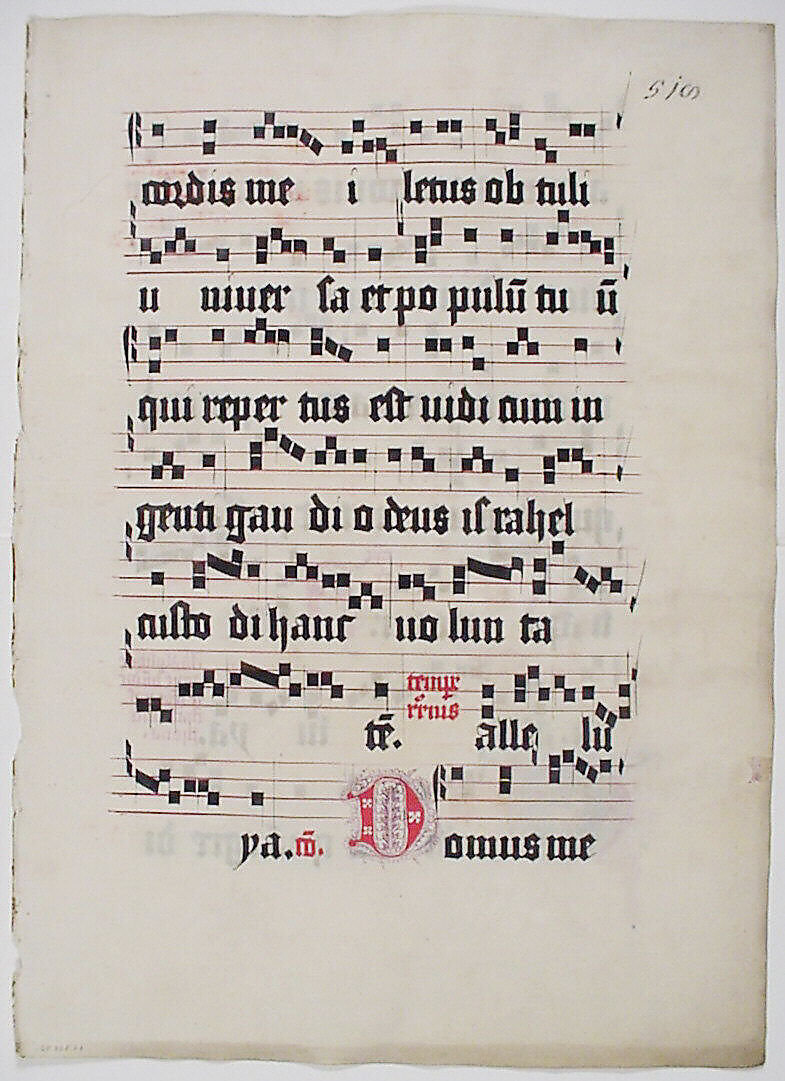 518
cordis me i letus ob tuli
u niuer sa et po pulū tu ū
qui reper tus est uidi cum in
genti gau di o deus is rahel
custo di hanc uo lun ta
temp̄r
tē. alle lu
ya. cō. Domus me